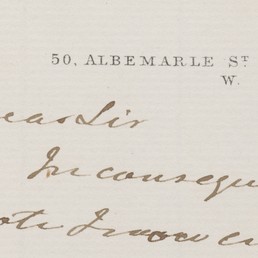 50, ALBEMARLE ST
W.
Dear Sir
In consequ
note I now en